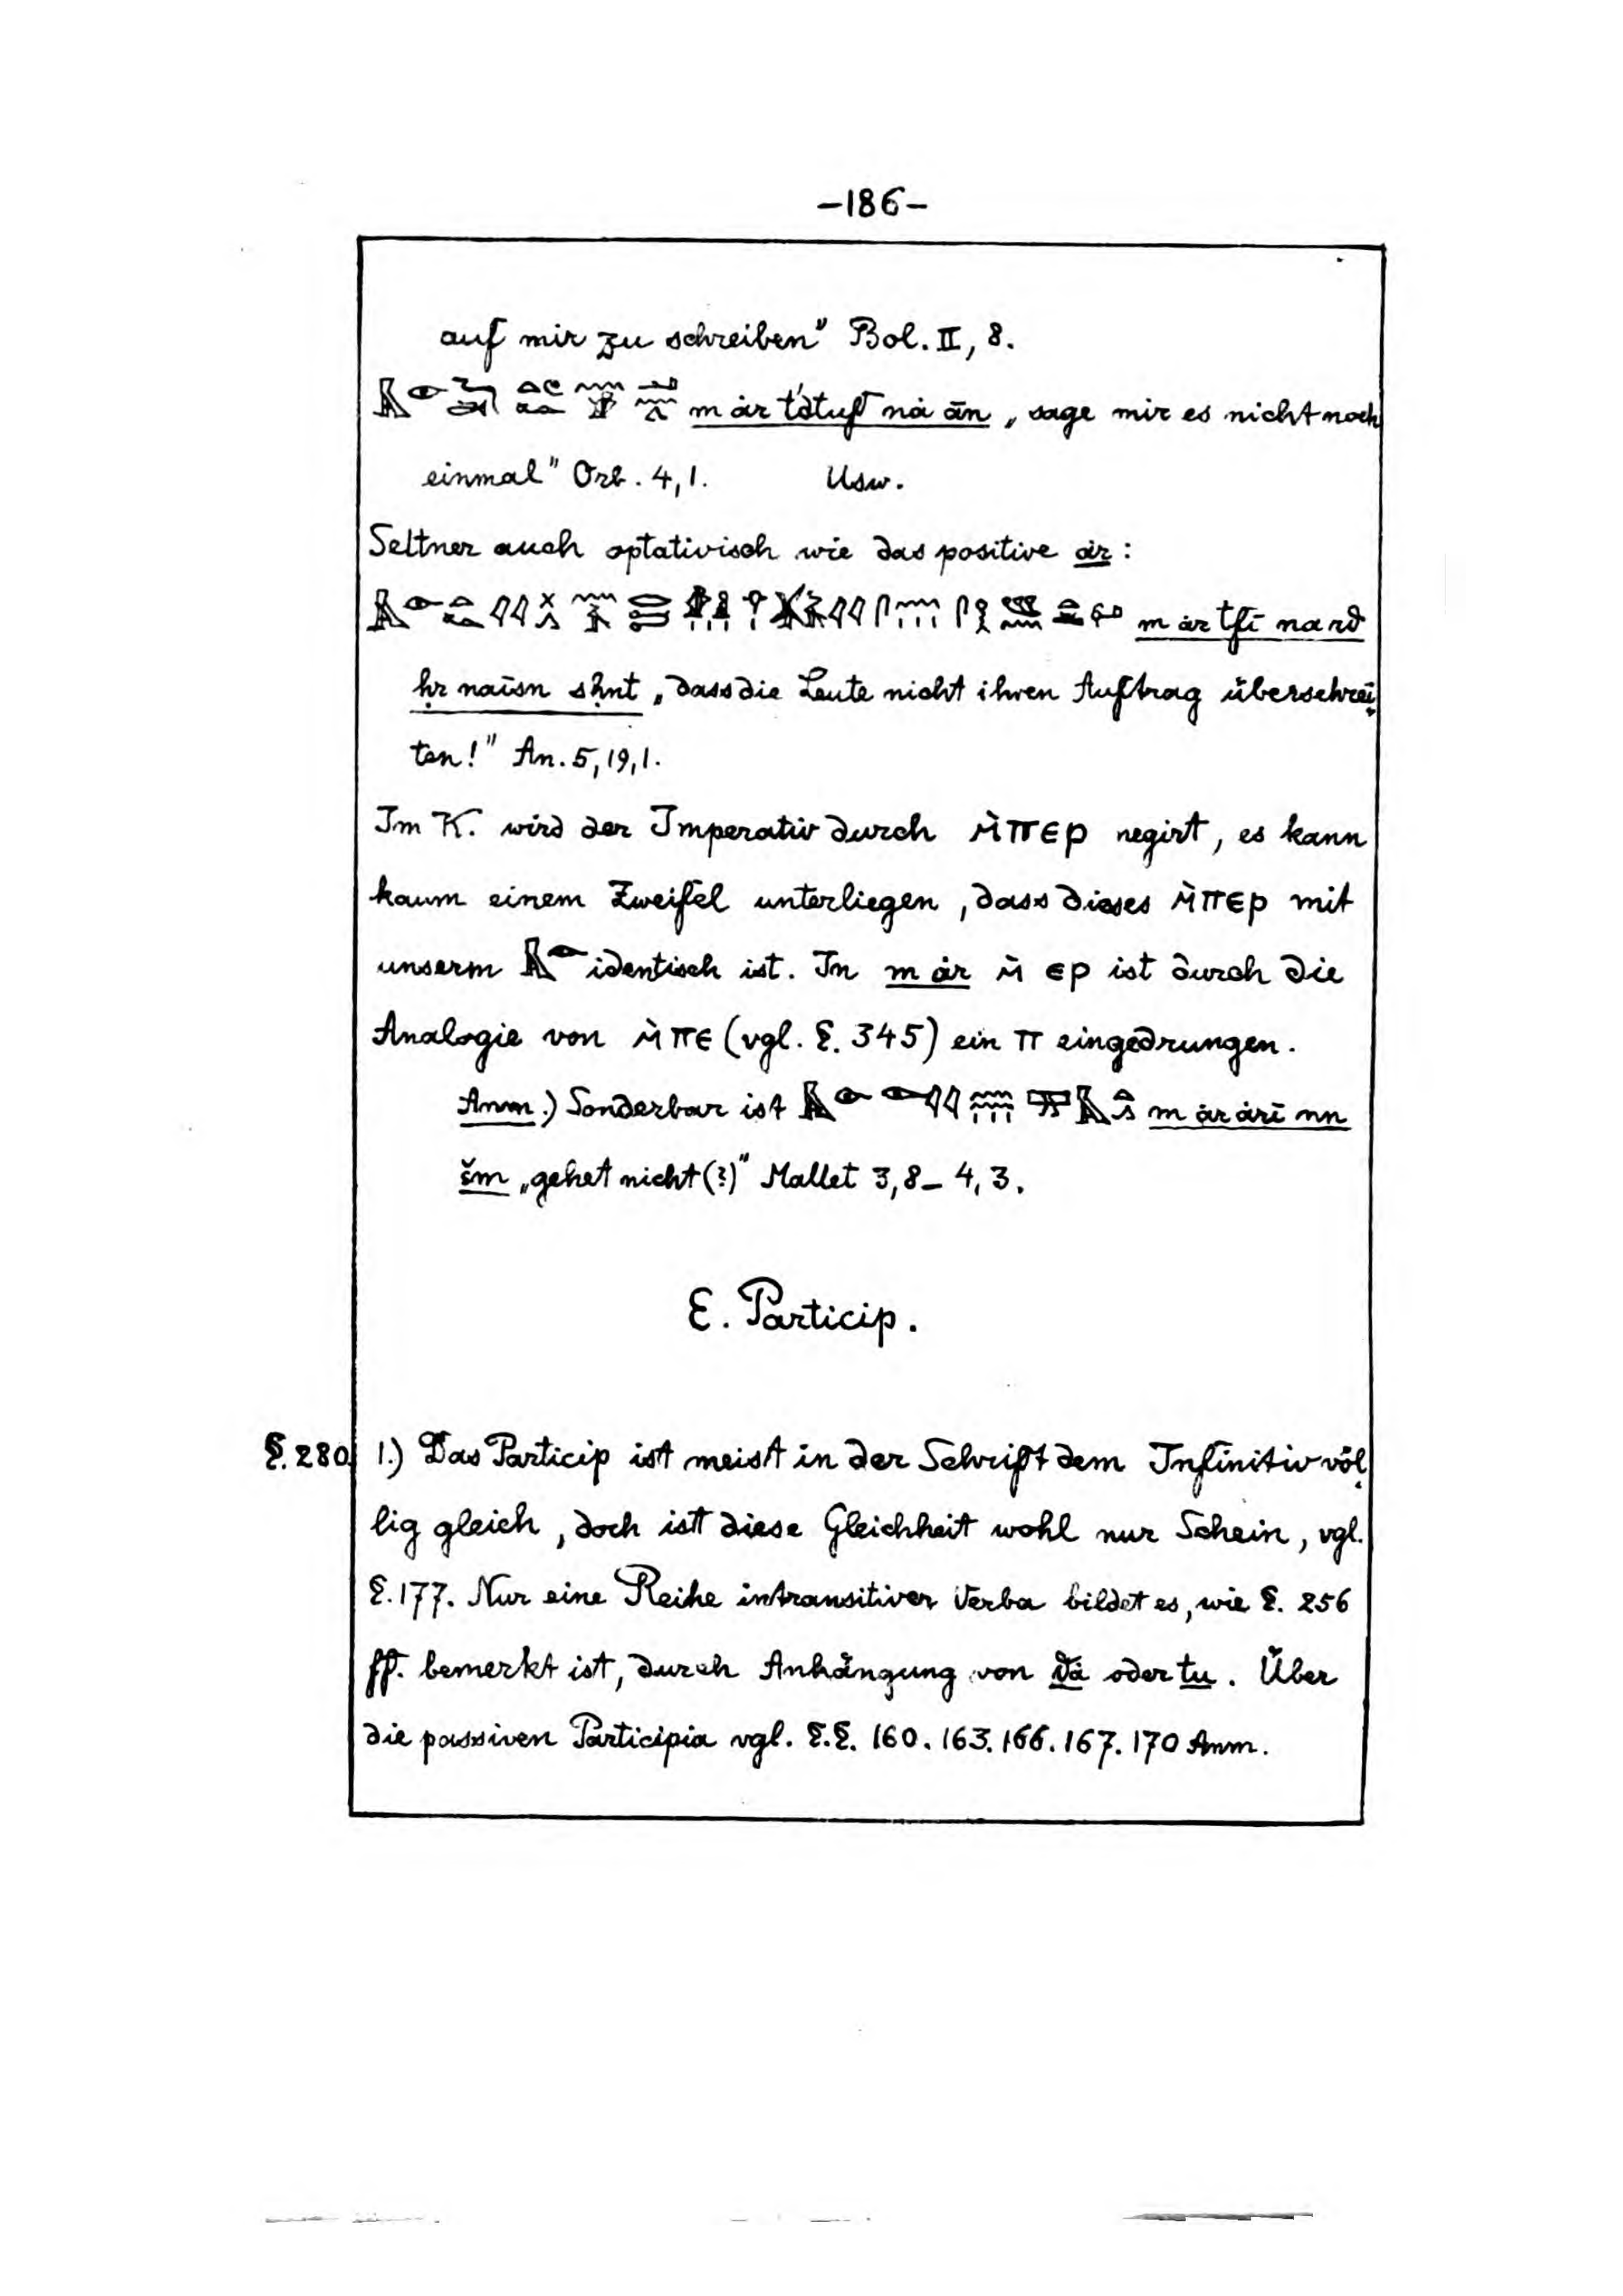 –186–
auf mir zu schreiben" Bol. II, 8.
m ȧr t'ȧtuf nȧ ān „sage mir es nicht noch
einmal" Orb. 4,1. Usw.
Seltner auch optativisch wie das positive ȧr:
m ȧr tfī na rd
ḥr naīsn sḥnt „dass die Leute nicht ihren Auftrag überschrei-
ten!" An. 5, 19, 1.
Im K. wird der Imperativ durch ⲙ̀ⲡⲉⲣ negirt, es kann
kaum einem Zweifel unterliegen, dass dieses ⲙ̀ⲡⲉⲣ mit
unserm 𓅓𓁹 identisch ist. In m ȧr ⲙ̀ ⲉⲣ ist durch die
Analogie von ⲙ̀ⲡⲉ (vgl. §. 345) ein ⲡ eingedrungen.
Anm.) Sonderbar ist m ȧr ȧrī nn
šm „gehet nicht (?)" Mallet 3,8– 4,3.
E. Particip.
§. 280. 1.) Das Particip ist meist in der Schrift dem Infinitiv völ-
lig gleich, doch ist diese Gleichheit wohl nur Schein, vgl.
§. 177. Nur eine Reihe intransitiver Verba bildet es, wie §. 256
ff. bemerkt ist, durch Anhängung von oder tu. Über
die passiven Participia vgl. §.§. 160. 163. 166. 167. 170 Anm.